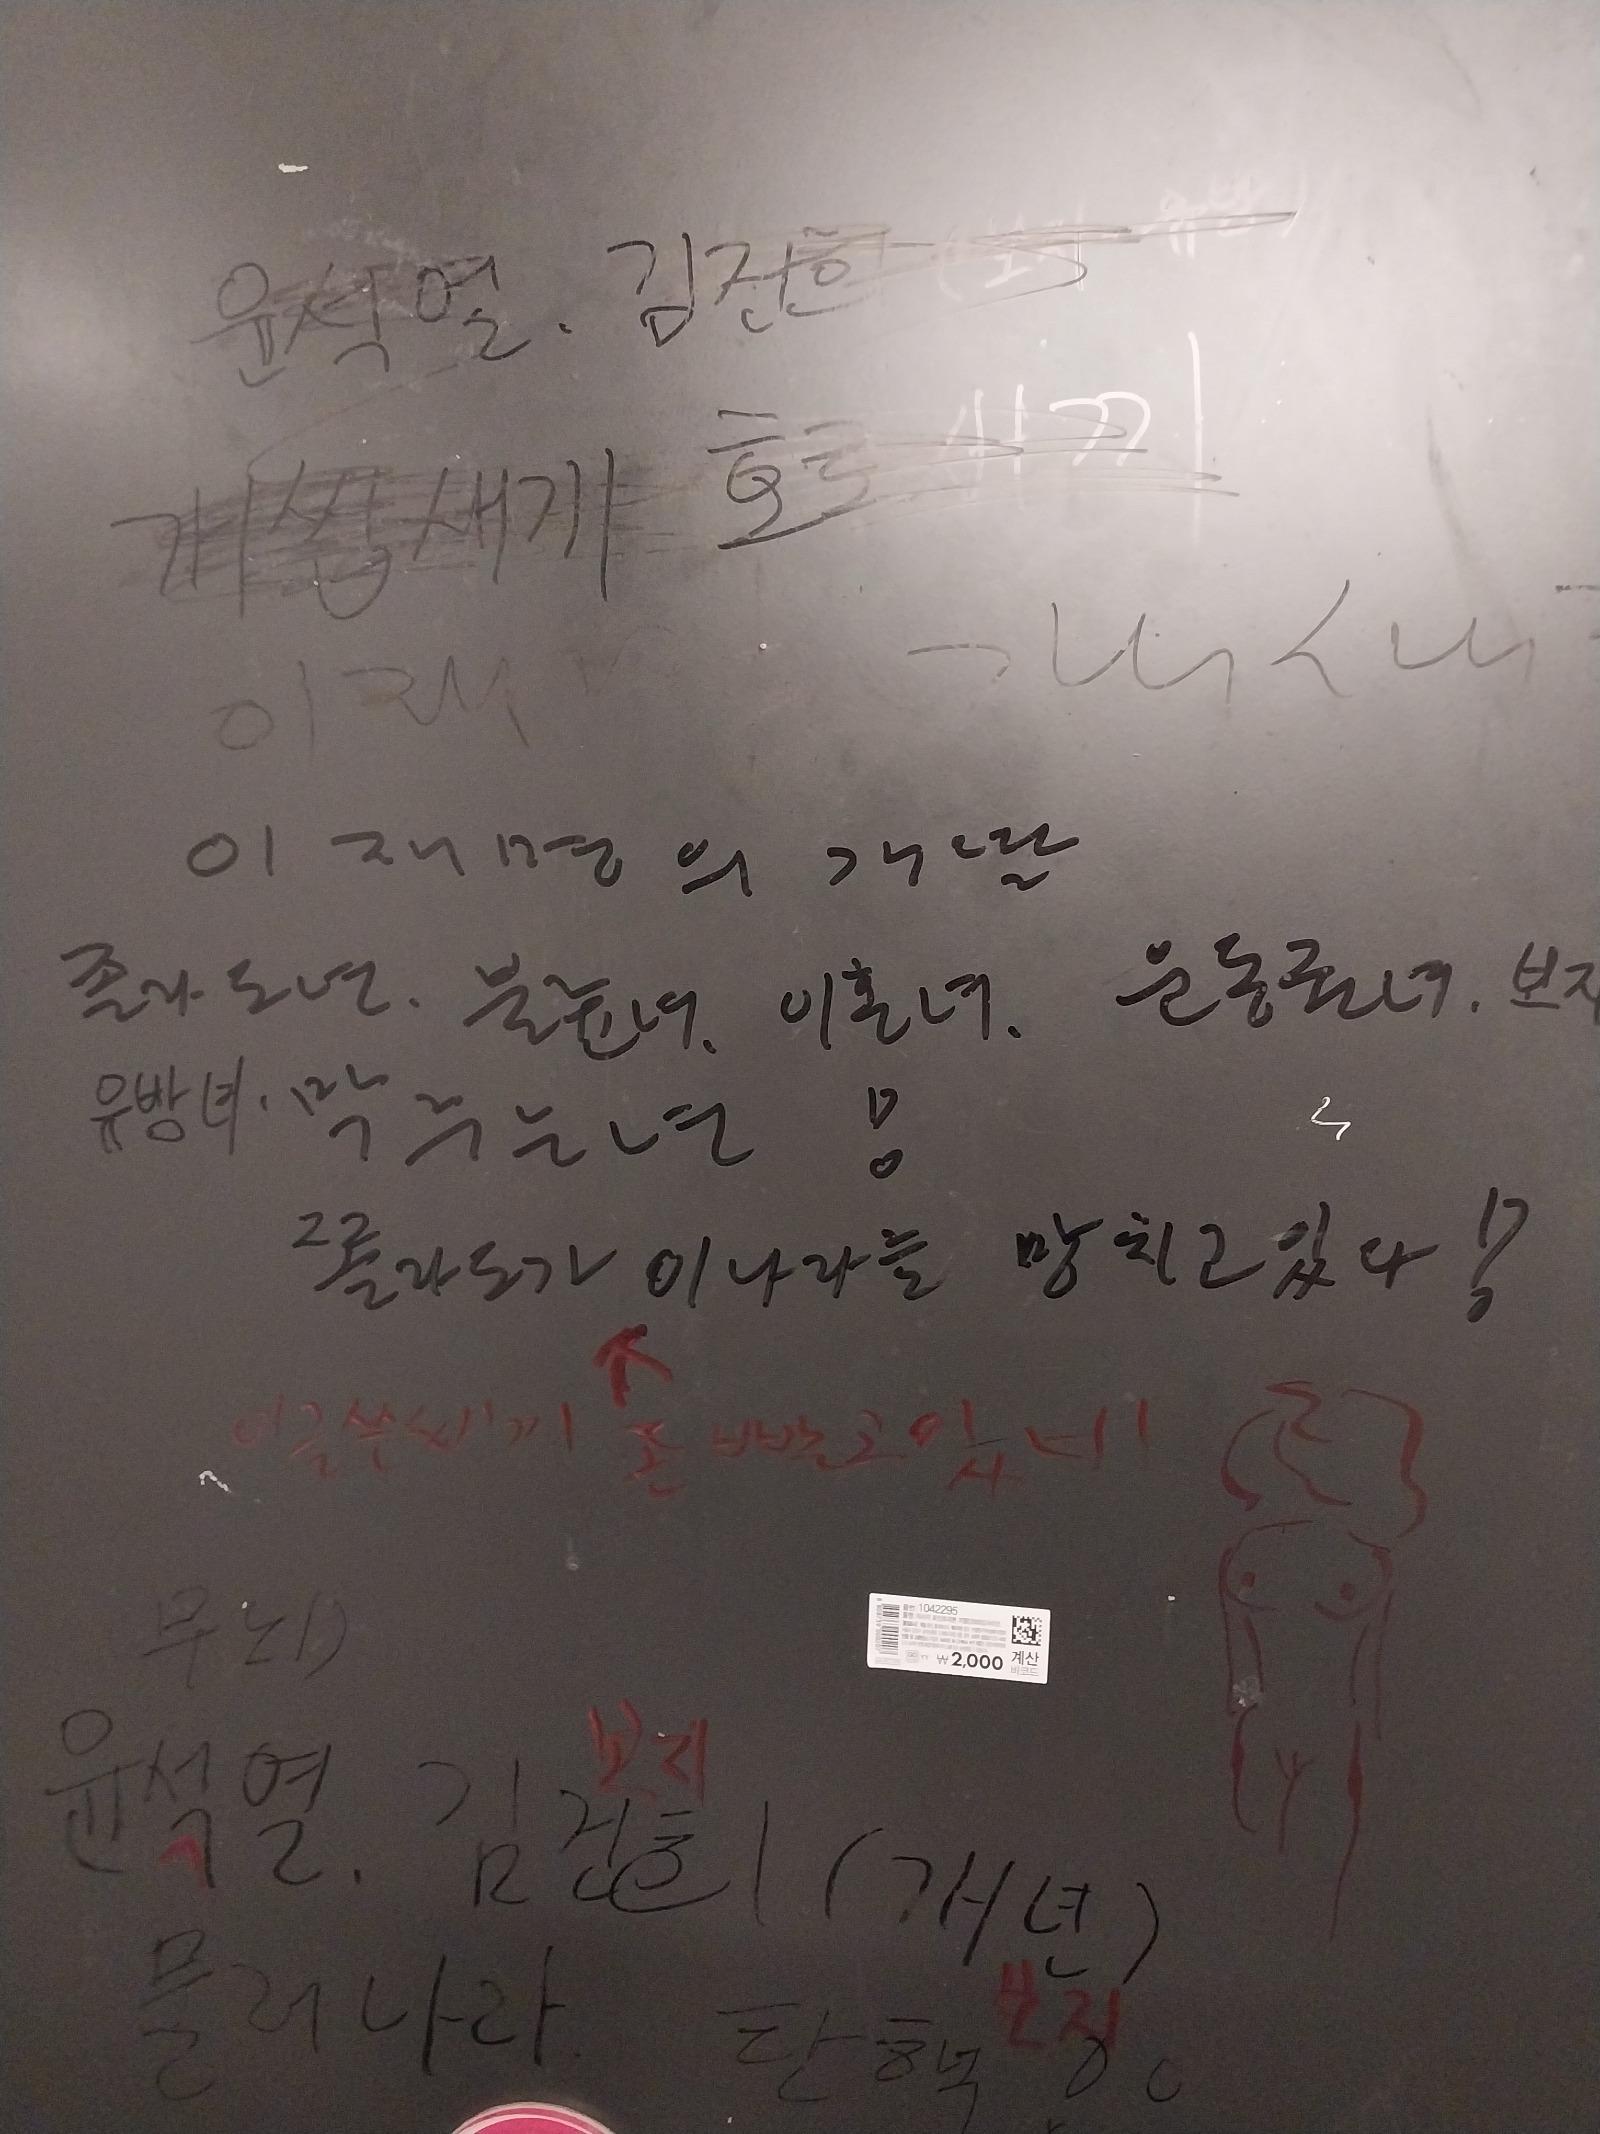 윤석열. 김건희
개쌍새끼 호로새끼
이재
개새
이재명의 개딸
졸라도년. 불륜녀. 이혼녀. 운동권녀. 보지
유방녀. 막주는년 !
졸라도가 이나라를 망치고있다 !
이글쓴새끼 존 빠빨고있네!
무뇌)
보지
윤석열. 김건희 (개년)
물러나라. 탄핵
보지
1042295
₩2,000 계산
바코드